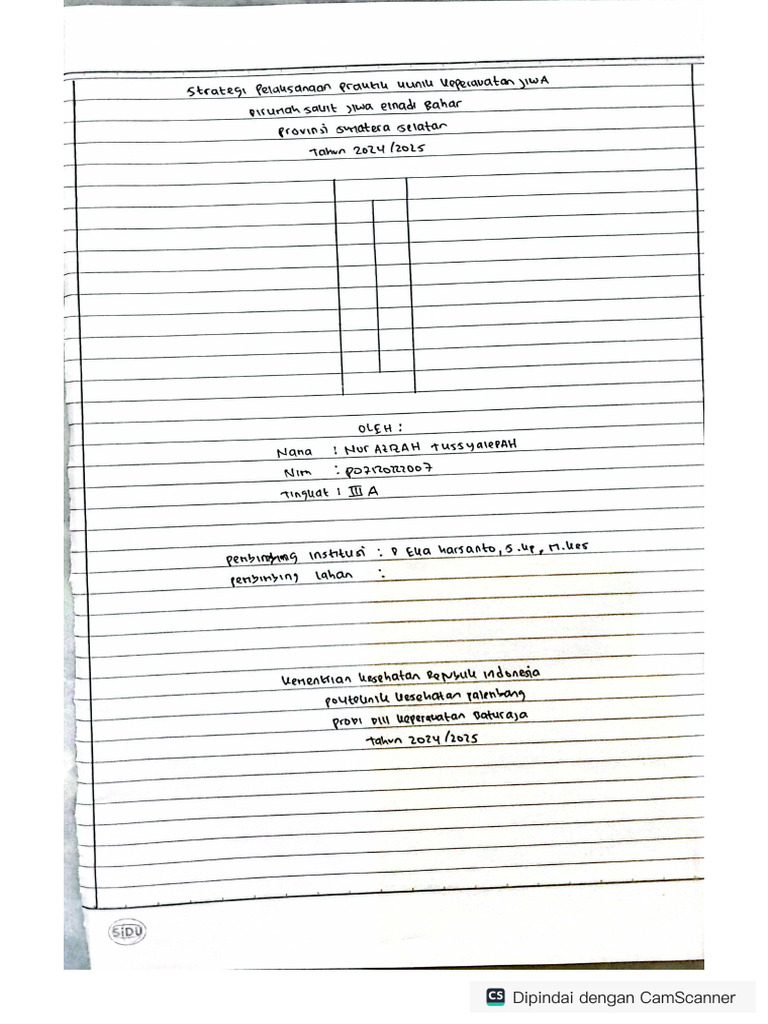 Strategi Pelaksanaan Praktik Klinik Keperawatan Jiwa
Dirumah Sakit Jiwa Elnadi Bahar
Provinsi Sumatera Selatan
Tahun 2024/2025
OLEH :
Nama : Nur AZIZAH Tussya'diah
Nim : P07120222007
Tingkat : III A
Pembimbing Institusi : D Eka Harsanto, S.Kp, M.Kes
Pembimbing Lahan :
Kementrian Kesehatan Republik Indonesia
Politeknik Kesehatan Palembang
Prodi DIII Keperawatan Baturaja
Tahun 2024/2025
SiDU
CS Dipindai dengan CamScanner